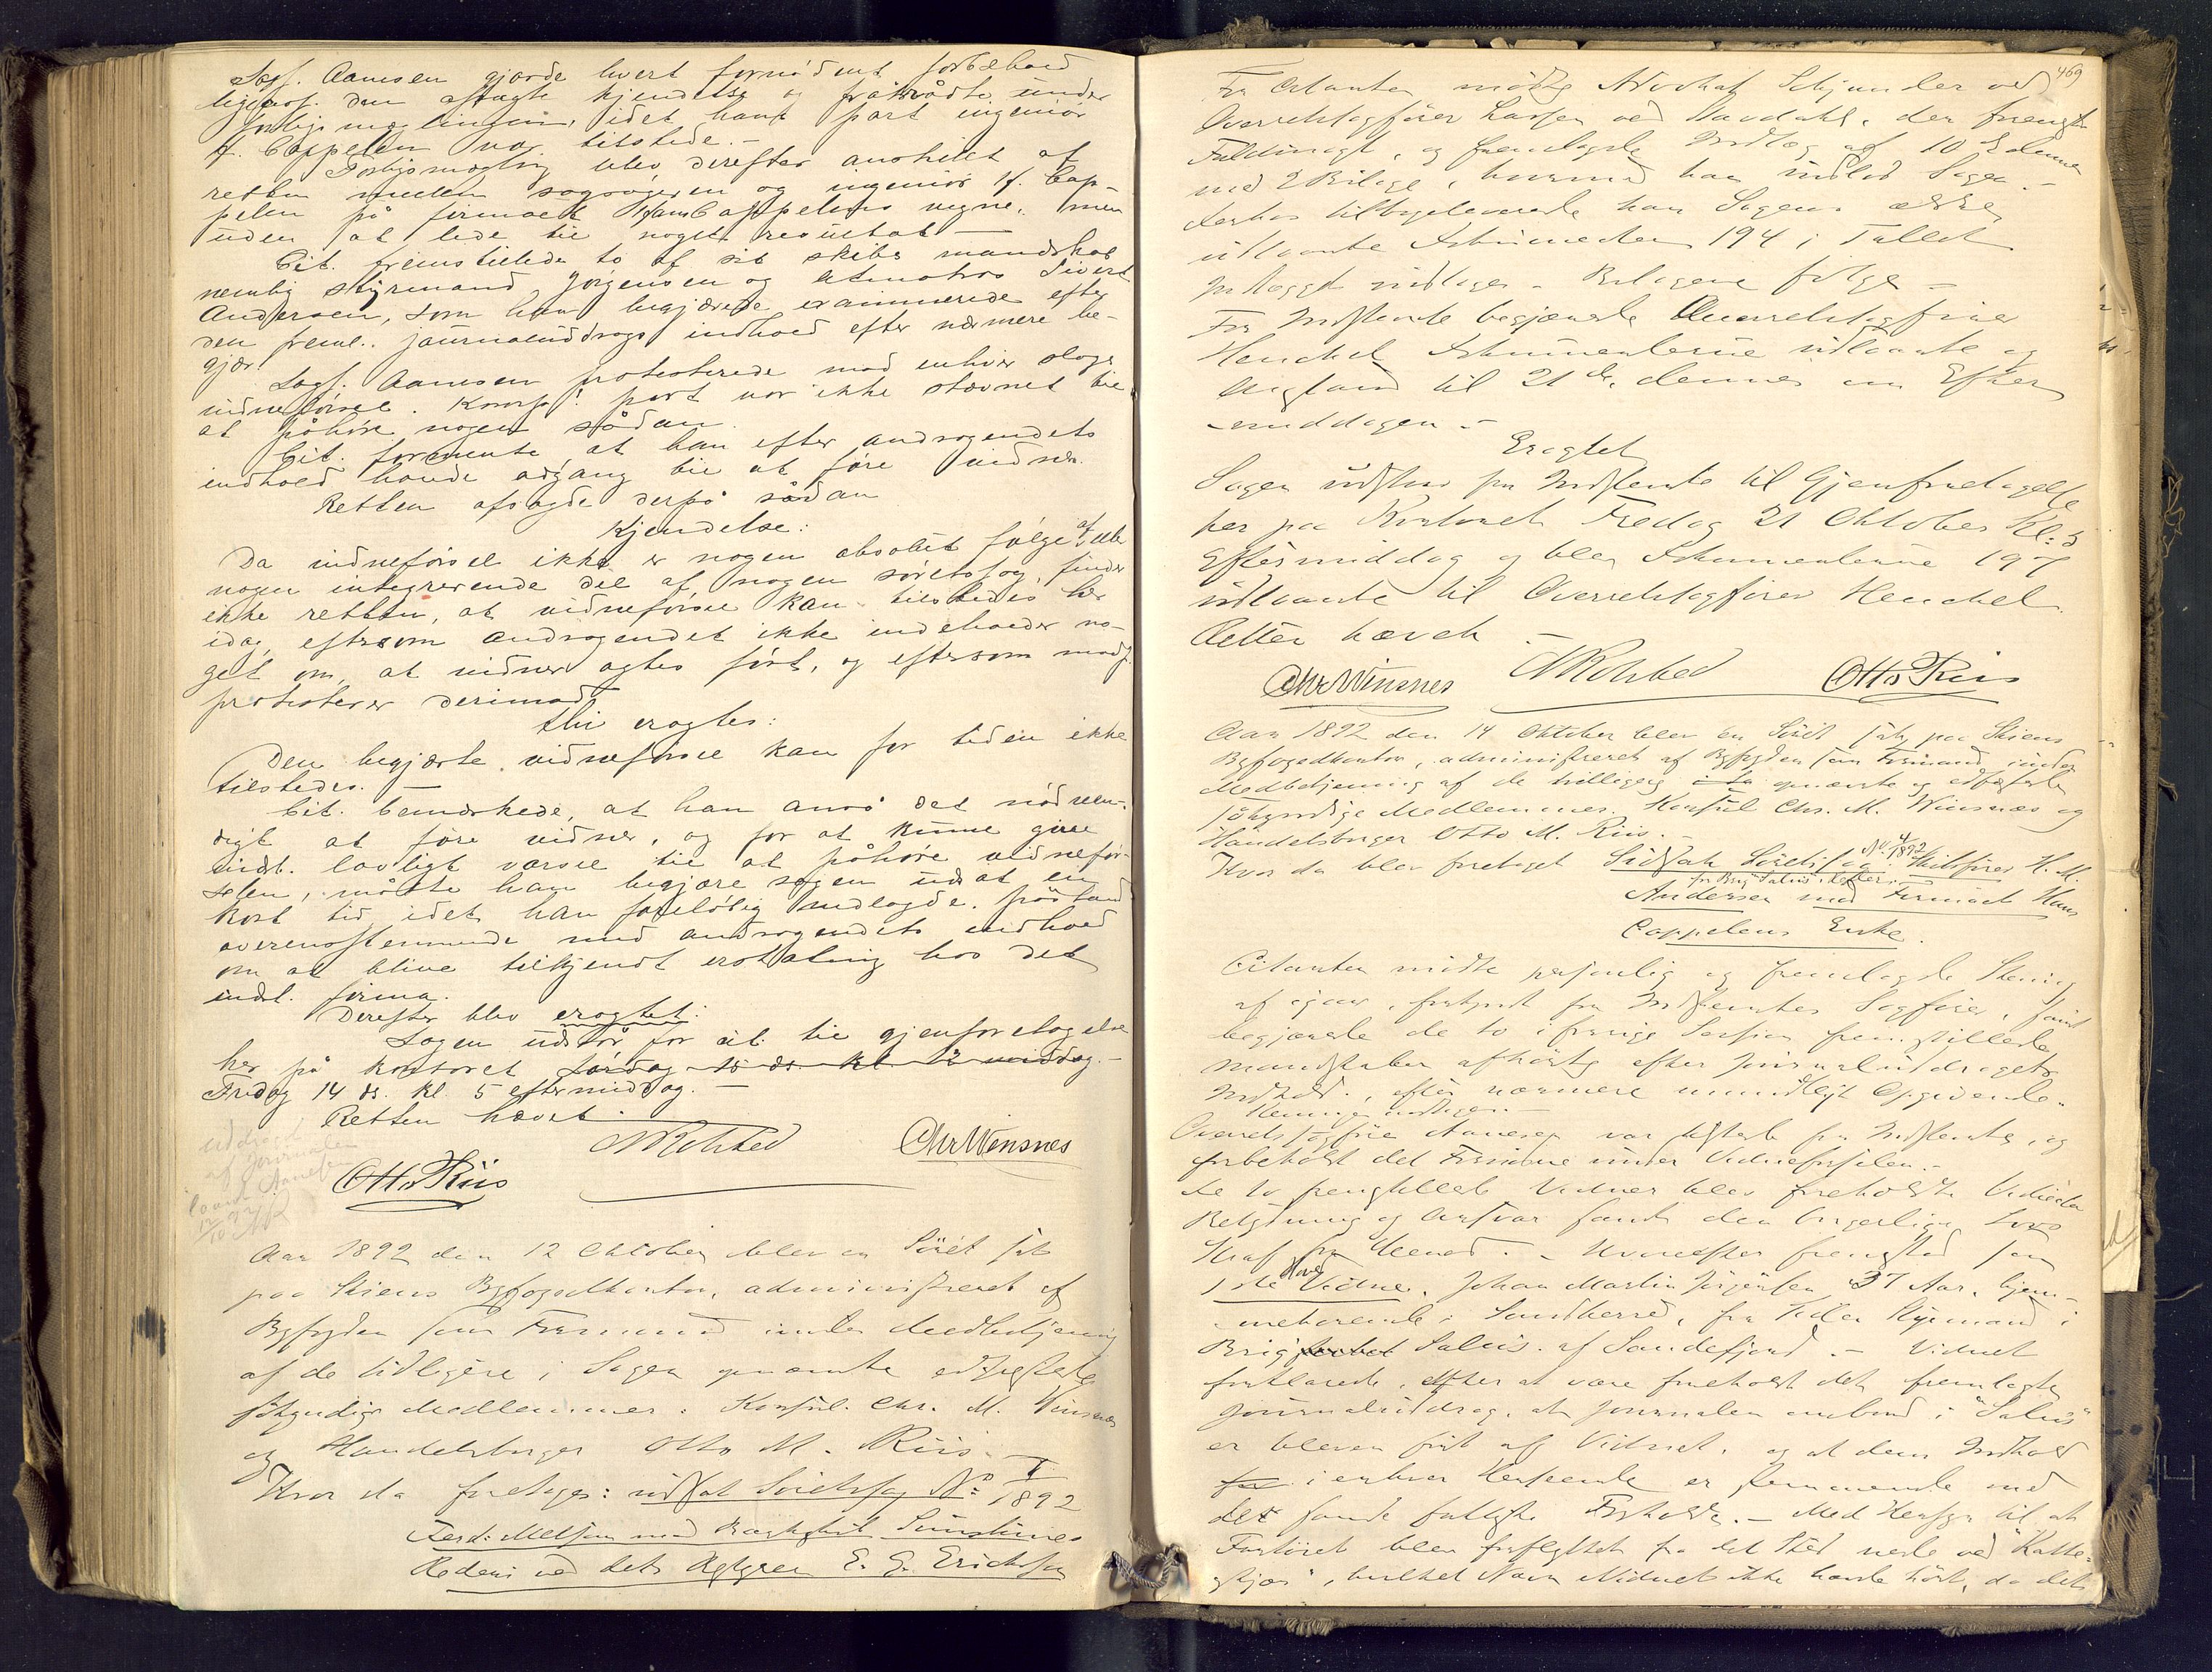 Sagf. Aamesen gjorde hvert fornødent forbehold
ligeovf. den afsagte kjendelse og fratrådte under
forligsmæglingen, idet hans part ingeniør
H. Cappelen var tilstede.-
Forligsmægling blev derefter anstillet af
retten mellem sagsøgeren og ingeniør H. Cap-
pelen på firmaet Hans Cappelens vegne, men
uden at lede til noget resultat.-
Cit. fremstillede to af sit skibs mandskab
nemlig styrmand Jörgensen og letmatros Sivert
Andersen, som han begjærede examinerede efter
den freml. journaluddrags indhold efter nærmere be-
gjær.
Sagf. Aamesen protesterede mod enhver slags
vidneförsel. Hans part var ikke stævnet til
at påhöre nogen sådan.
Cit. formente, at han efter andragendets
indhold havde adgang til at före vidner.
Retten afsagde derpå sådan
Kjendelse:
Da vidneførsel ikke er nogen absolut følge af eller
nogen integrerende del af nogen søretssag, finder
ikke retten, at vidneførsel kan tilstedes her
idag, eftersom andragendet ikke indeholder no-
get om, at vidner agtes ført, og eftersom modp.
protesterer derimod
thi eragtes:
Den begjærte vidneførsel kan for tiden ikke
tilstedes.-
Cit. bemærkede, at han anså det nødven-
digt at føre vidner, og for at kunne give
indst. lovligt varsel til at påhøre vidneför-
selen, måtte han begjære sagen udsat en
kort tid, idet han foreløbig nedlagde påstand
overensstemmende med andragendets indhold
om at blive tilkjendt erstatning hos det
indst. firma.
Derefter blev eragtet:
Sagen udstår for cit. til gjenforetagelse
her på kontoret Lørdag 15 ds. kl. 12 middag.-
Fredag 14 ds. kl 5 eftermiddag.-
Retten hævet.
NRolsted
ChrWinsnes
Otto Riis
uddrag
af Journalen
Aamesen
Aar 1892 den 12 Oktober blev en Søret sat
paa Skiens Byfogedkontor, administreret af
Byfogden som Formand under Medbetjening
af de tidligere i Sagen opnævnte edfæstede
søkyndige Medlemmer: Konsul Chr. M. Winsnes
og Handelsborger Otto M. Riis.-
Hvor da foretoges: udsat Søretssag No 1/1892
Rederi ved dets Bestyrer E. G. Erichsen
469
For Citanten mødte Advokat Schjander ved
Overretssagfører Larsen ved Stavdahl, der fremlagde
Fuldmagt, og fremlagde Indlæg af 10 de dennes
med 2 Bilage, hvormed han indlod Sagen.-
Derhos tilbageleverede han Sagens ækte
udlaante Dokumenter 194 i Tallet
Indlægget indtages - Bilagene følge -
For Indstevnte begjærede Overretssagfører
Henchel Dokumenterne udlaante og
Anstand til 21 de dennes om Efter
-middagen.-
Eragtet
Sagen udstaar for Indstevnte til Gjenforetagelse
her paa Kontoret Fredag 21 Oktober Kl: 5
Eftermiddag og blev Dokumenterne 197
udlaante til Overretssagfører Henchel.
Retten hævet.-
ChrWinsnes
NRolsted
Otto Riis
Aar 1892 den 14 Oktober blev en Søret sat paa Skiens
Byfogedkontor, administreret af Byfogden som Formand under
Medbetjening af de tidligere opnævnte og edfæstede
søkyndige Medlemmer Konsul Chr. M. Winsnes og
Handelsborger Otto M. Riis.-
Hvor da blev foretaget Udsat Søretssag No 4/1892 Skibsfører H. M.
for Brig "Salus" Rederi
Andersen mod Firmaet Hans
Cappelens Enke.
Citanten mødte personlig og fremlagde Stevning
af igaar, forkyndt for Indstevntes Sagfører, samt
begjærede de to i forrige Session fremstillede
Mandskaber afhørte efter Journaluddragets
Indhold, efter nærmere mundtligt Opgivende.
Stevningen indtages.-
Overretssagfører Aamesen var tilstede for Indstevnte, og
forbeholdt det Fornødne under Vidneførselen.-
De to fremstillede Vidner blev foreholdt Vidnets
Betydning og Ansvar samt den borgerlige Lovs
Straf for Mened.- Hvorefter fremstod som
1ste Vidne, Johan Martin Jørgensen 37 Aar, hjem-
-mehørende i Sandherred, for Tiden Styrmand i
Brig Salus af Sandefjord.- Vidnet
forklarede, efter at være foreholdt det fremlagte
Journaluddrag, at Journalen ombord i "Salus"
er bleven ført af Vidnet, og at dens Indhold
i enhver Henseende er stemmende med
det sande faktiske Forhold.- Med Hensyn til at
Fartøiet blev forflyttet fra det Sted nede ved "Katte-
skjær", hvilket Navn Vidnet ikke havde hørt, da det